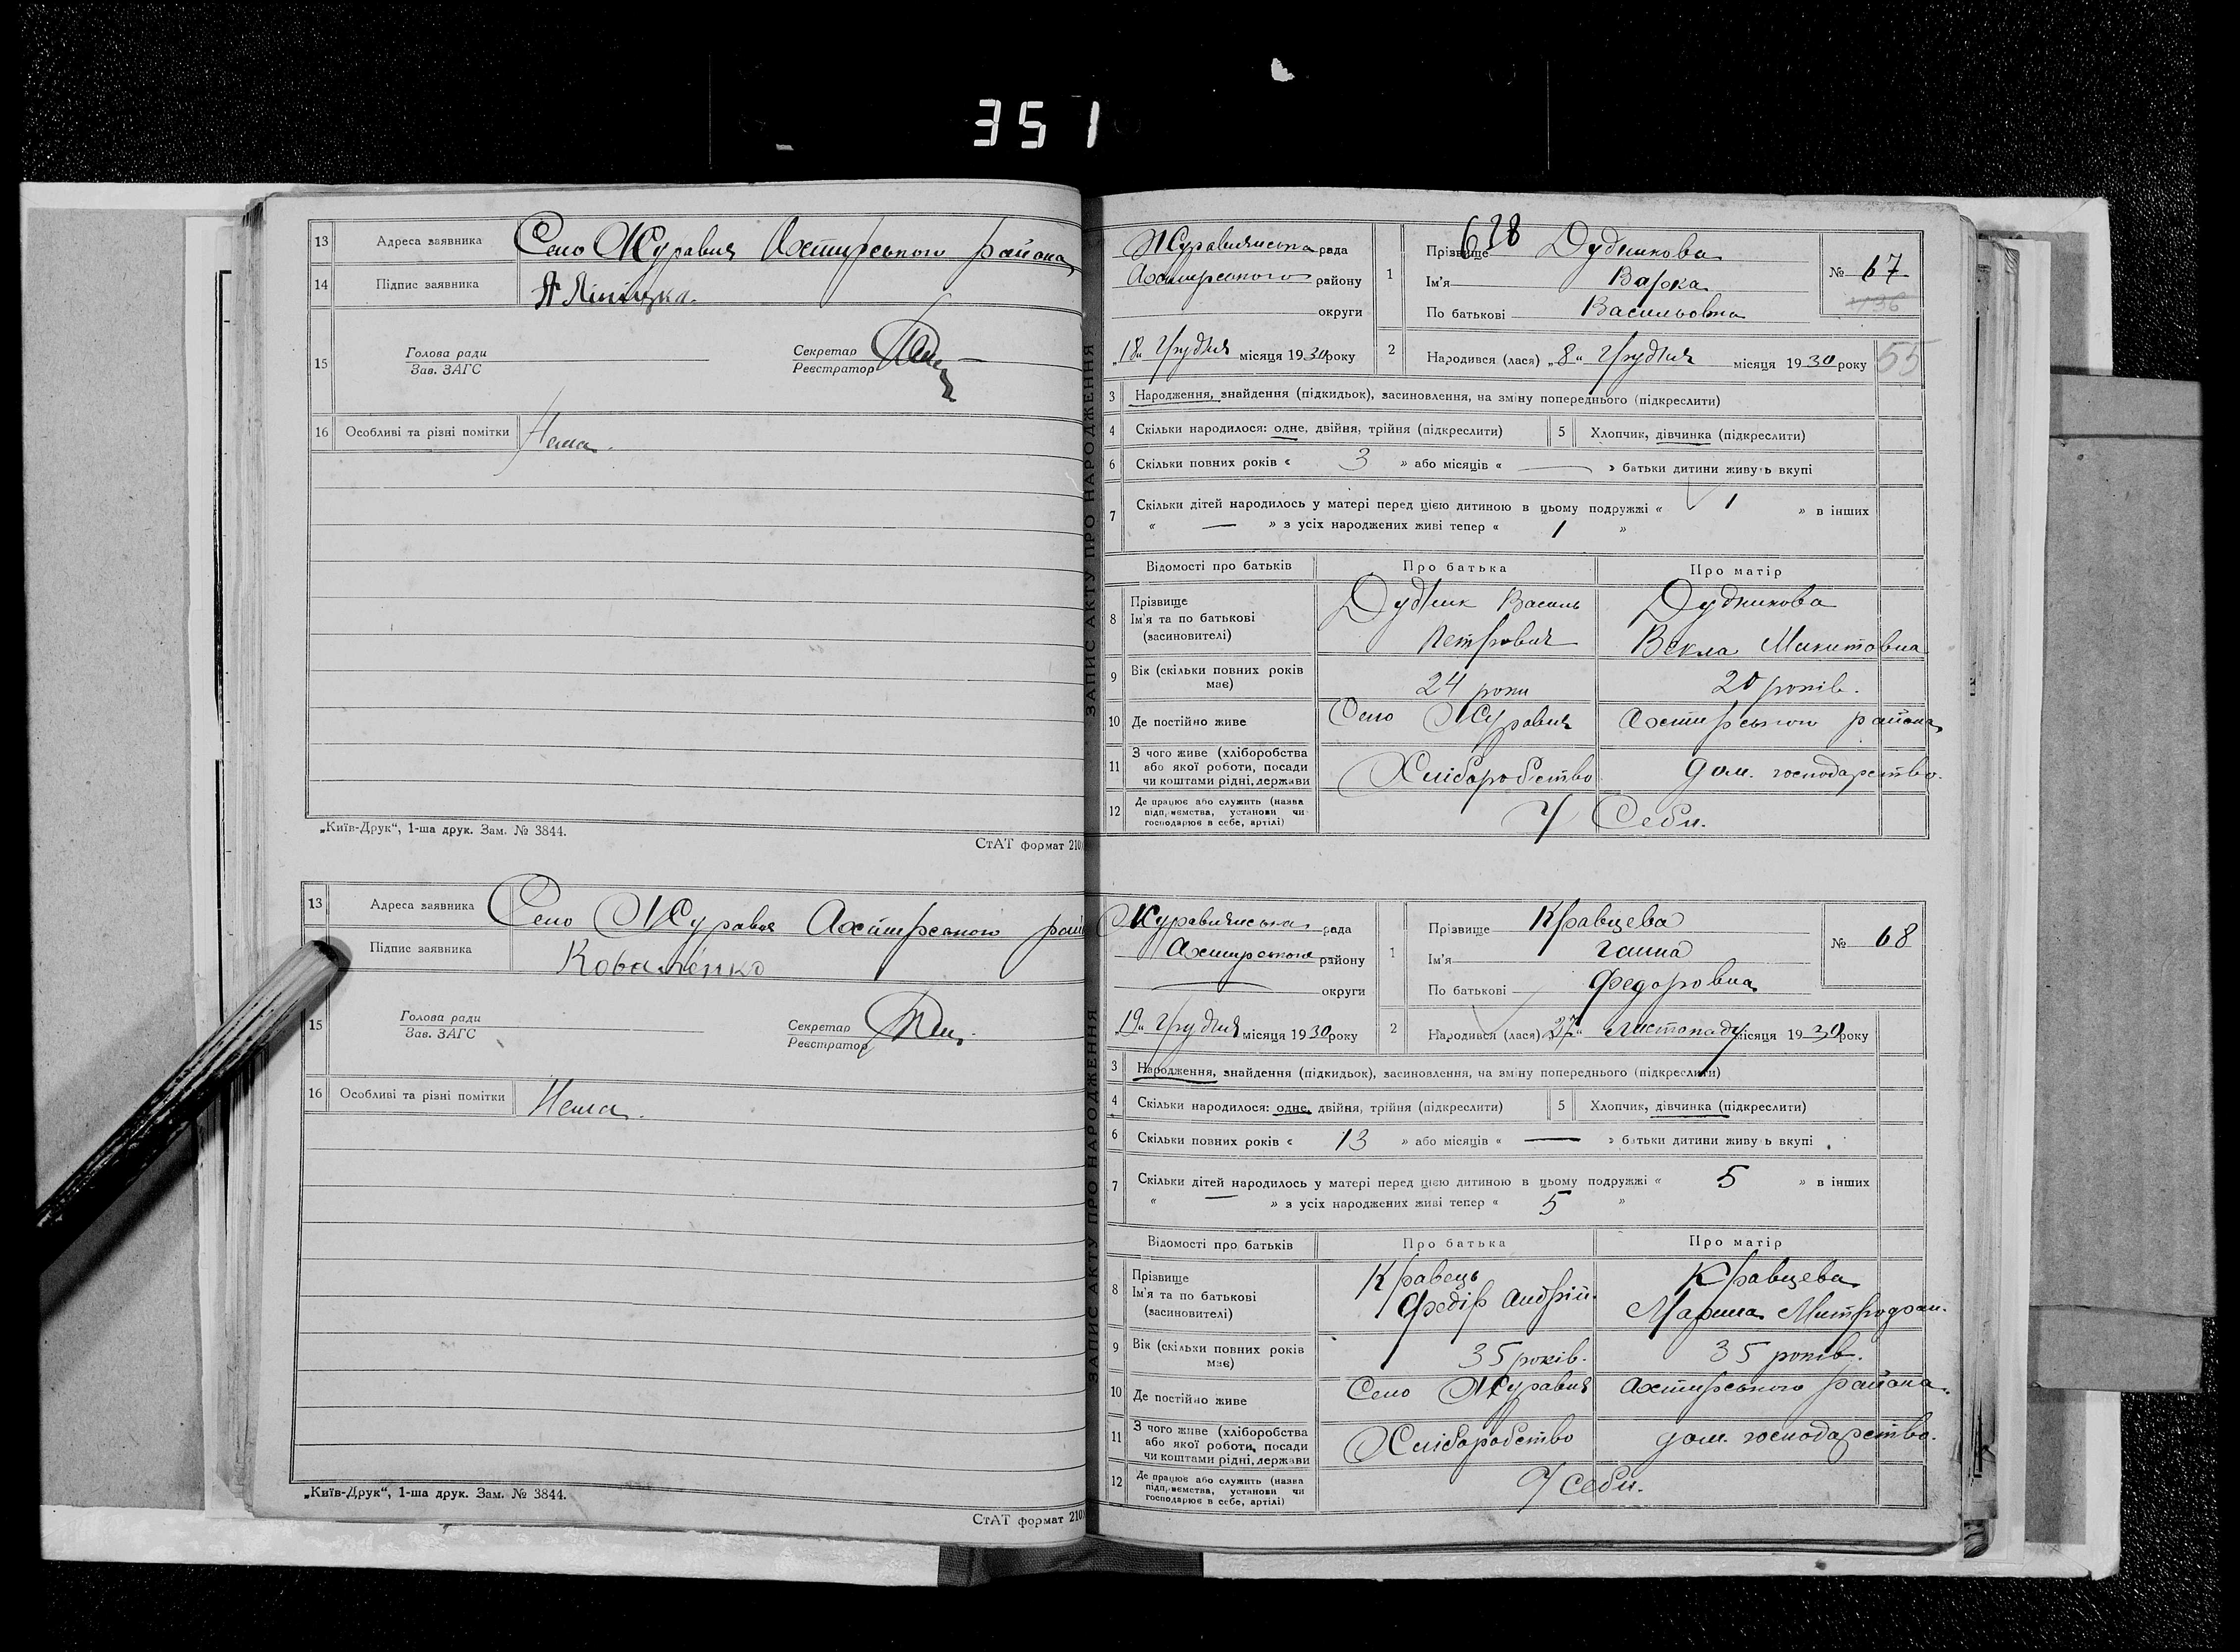 351
13 Адреса заявника Село Журавня Охтирського района
14 Підпис заявника
15 Голова ради
Зав. ЗАГС
Секретар
Реєстратор
16 Особливі та різні помітки Нема.
„Київ-Друк“, 1-ша друк. Зам. № 3844.
СтАТ формат 210
13 Адреса заявника Село Журавня Охтирського рай
Підпис заявника Коваленко
15 Голова ради
Зав. ЗАГС
Секретар
Реєстратор
16 Особливі та різні помітки Нема.
„Київ-Друк“, 1-ша друк. Зам. № 3844.
СтАТ формат 210
ЗАПИС АКТУ ПРО НАРОДЖЕННЯ
638
рада
Охтирського району
округи
„18“ Грудня місяця 1930 року
1 Прізвище Дудникова
Ім'я Варка
По батькові Васильовна
№ 67
55
2 Народився (лася) „8“ Грудня місяця 1930 року
3 Народження, знайдення (підкидьок), засиновлення, на зміну попереднього (підкреслити)
4 Скільки народилося: одне, двійня, трійня (підкреслити) 5 Хлопчик, дівчинка (підкреслити)
6 Скільки повних років « 3 » або місяців « — » батьки дитини живуть вкупі
7 Скільки дітей народилось у матері перед цією дитиною в цьому подружжі « 1 » в інших
« — » з усіх народжених живі тепер « 1 »
Відомості про батьків Про батька Про матір
8 Прізвище
Ім'я та по батькові
(засиновителі)
Дудник Василь
Петрович
Дудникова
Векла Микитовна
9 Вік (скільки повних років
має)
24 роки 20 років.
10 Де постійно живе Село Журавня Охтирського района
11 З чого живе (хліборобства
або якої роботи, посади
чи коштами рідні, держави
Хліборобство дом. господарство.
12 Де працює або служить (назва
підприємства, установи чи
господарює в себе, артілі)
У Себи.
ЗАПИС АКТУ ПРО НАРОДЖЕННЯ
рада
Охтирського району
округи
„19“ Грудня місяця 1930 року
1 Прізвище Кравцева
Ім'я Ганна
По батькові Федоровна
№ 68
2 Народився (лася) 27“ Листопаду місяця 1930 року
3 Народження, знайдення (підкидьок), засиновлення, на зміну попереднього (підкреслити)
4 Скільки народилося: одне, двійня, трійня (підкреслити) 5 Хлопчик, дівчинка (підкреслити)
6 Скільки повних років « 13 » або місяців « — » батьки дитини живуть вкупі
7 Скільки дітей народилось у матері перед цією дитиною в цьому подружжі « 5 » в інших
« — » з усіх народжених живі тепер « 5 »
Відомості про батьків Про батька Про матір
8 Прізвище
Ім'я та по батькові
(засиновителі)
Кравець
Федір Андрій.
Кравцева
Марина
9 Вік (скільки повних років
має)
35 років. 35 років.
10 Де постійно живе Село Журавня Охтирського района.
11 З чого живе (хліборобства
або якої роботи, посади
чи коштами рідні, держави
Хліборобство дом. господарство.
12 Де працює або служить (назва
підприємства, установи чи
господарює в себе, артілі)
У Себи.